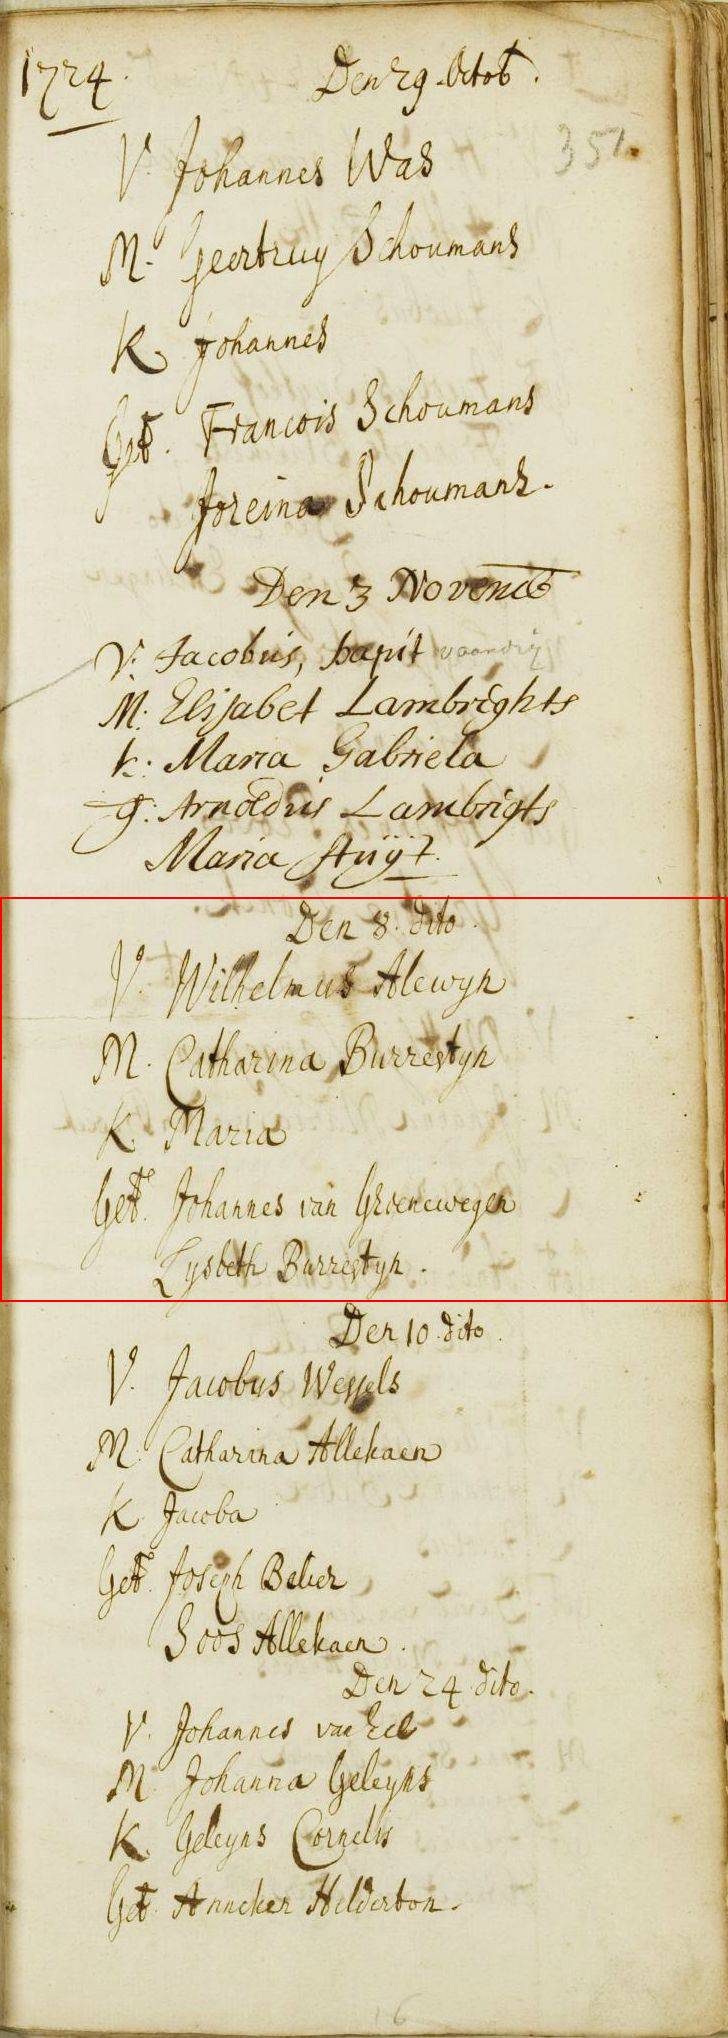 1724. Den 29 Octob.
351.
V. Johannes Was
M. Geertruy Schoumans
K. Johannes
Get. Francois Schoumans
Joreina Schoumans.
Den 3 Novemb
V: Jacobus, bapit vaandrij
M: Elisabet Lambrights
k: Maria Gabriela
g: Arnoldus Lambrigts
Maria Stuijt.
Den 8. dito.
V. Wilhelmus Alewyn
M. Catharina Burrestyn
K. Maria
Get. Johannes van Groenewegen
Lysbeth Burrestyn.
Den 10 dito.
V. Jacobus Wessels
M. Catharina Allekaen
K. Jacoba
Get. Joseph Beber
Soos Allekaen.
Den 24 dito.
V. Johannes van Eel
M. Johanna Geleyns
K. Geleyns Cornelis
Get. Anneker Helderton.